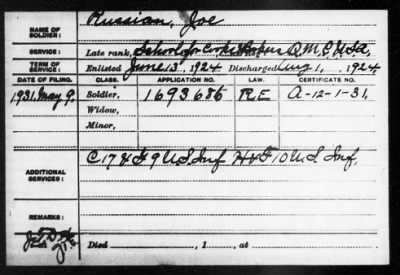 NAME OF SOLDIER: Russian, Joe
SERVICE: Late rank, School for Cooks & Bakers Q.M.C. U.S.A.
TERM OF SERVICE: Enlisted June 13, 1924 Discharged Aug 1, 1924.
DATE OF FILING. CLASS. APPLICATION NO. LAW. CERTIFICATE NO.
1931, May 9. Soldier, 1693686 R.E. A-12-1-31.
Widow,
Minor,
ADDITIONAL SERVICES: C 17 & G 9 U.S. Inf H & F 10 U.S. Inf.
REMARKS:
Died , 1 , at